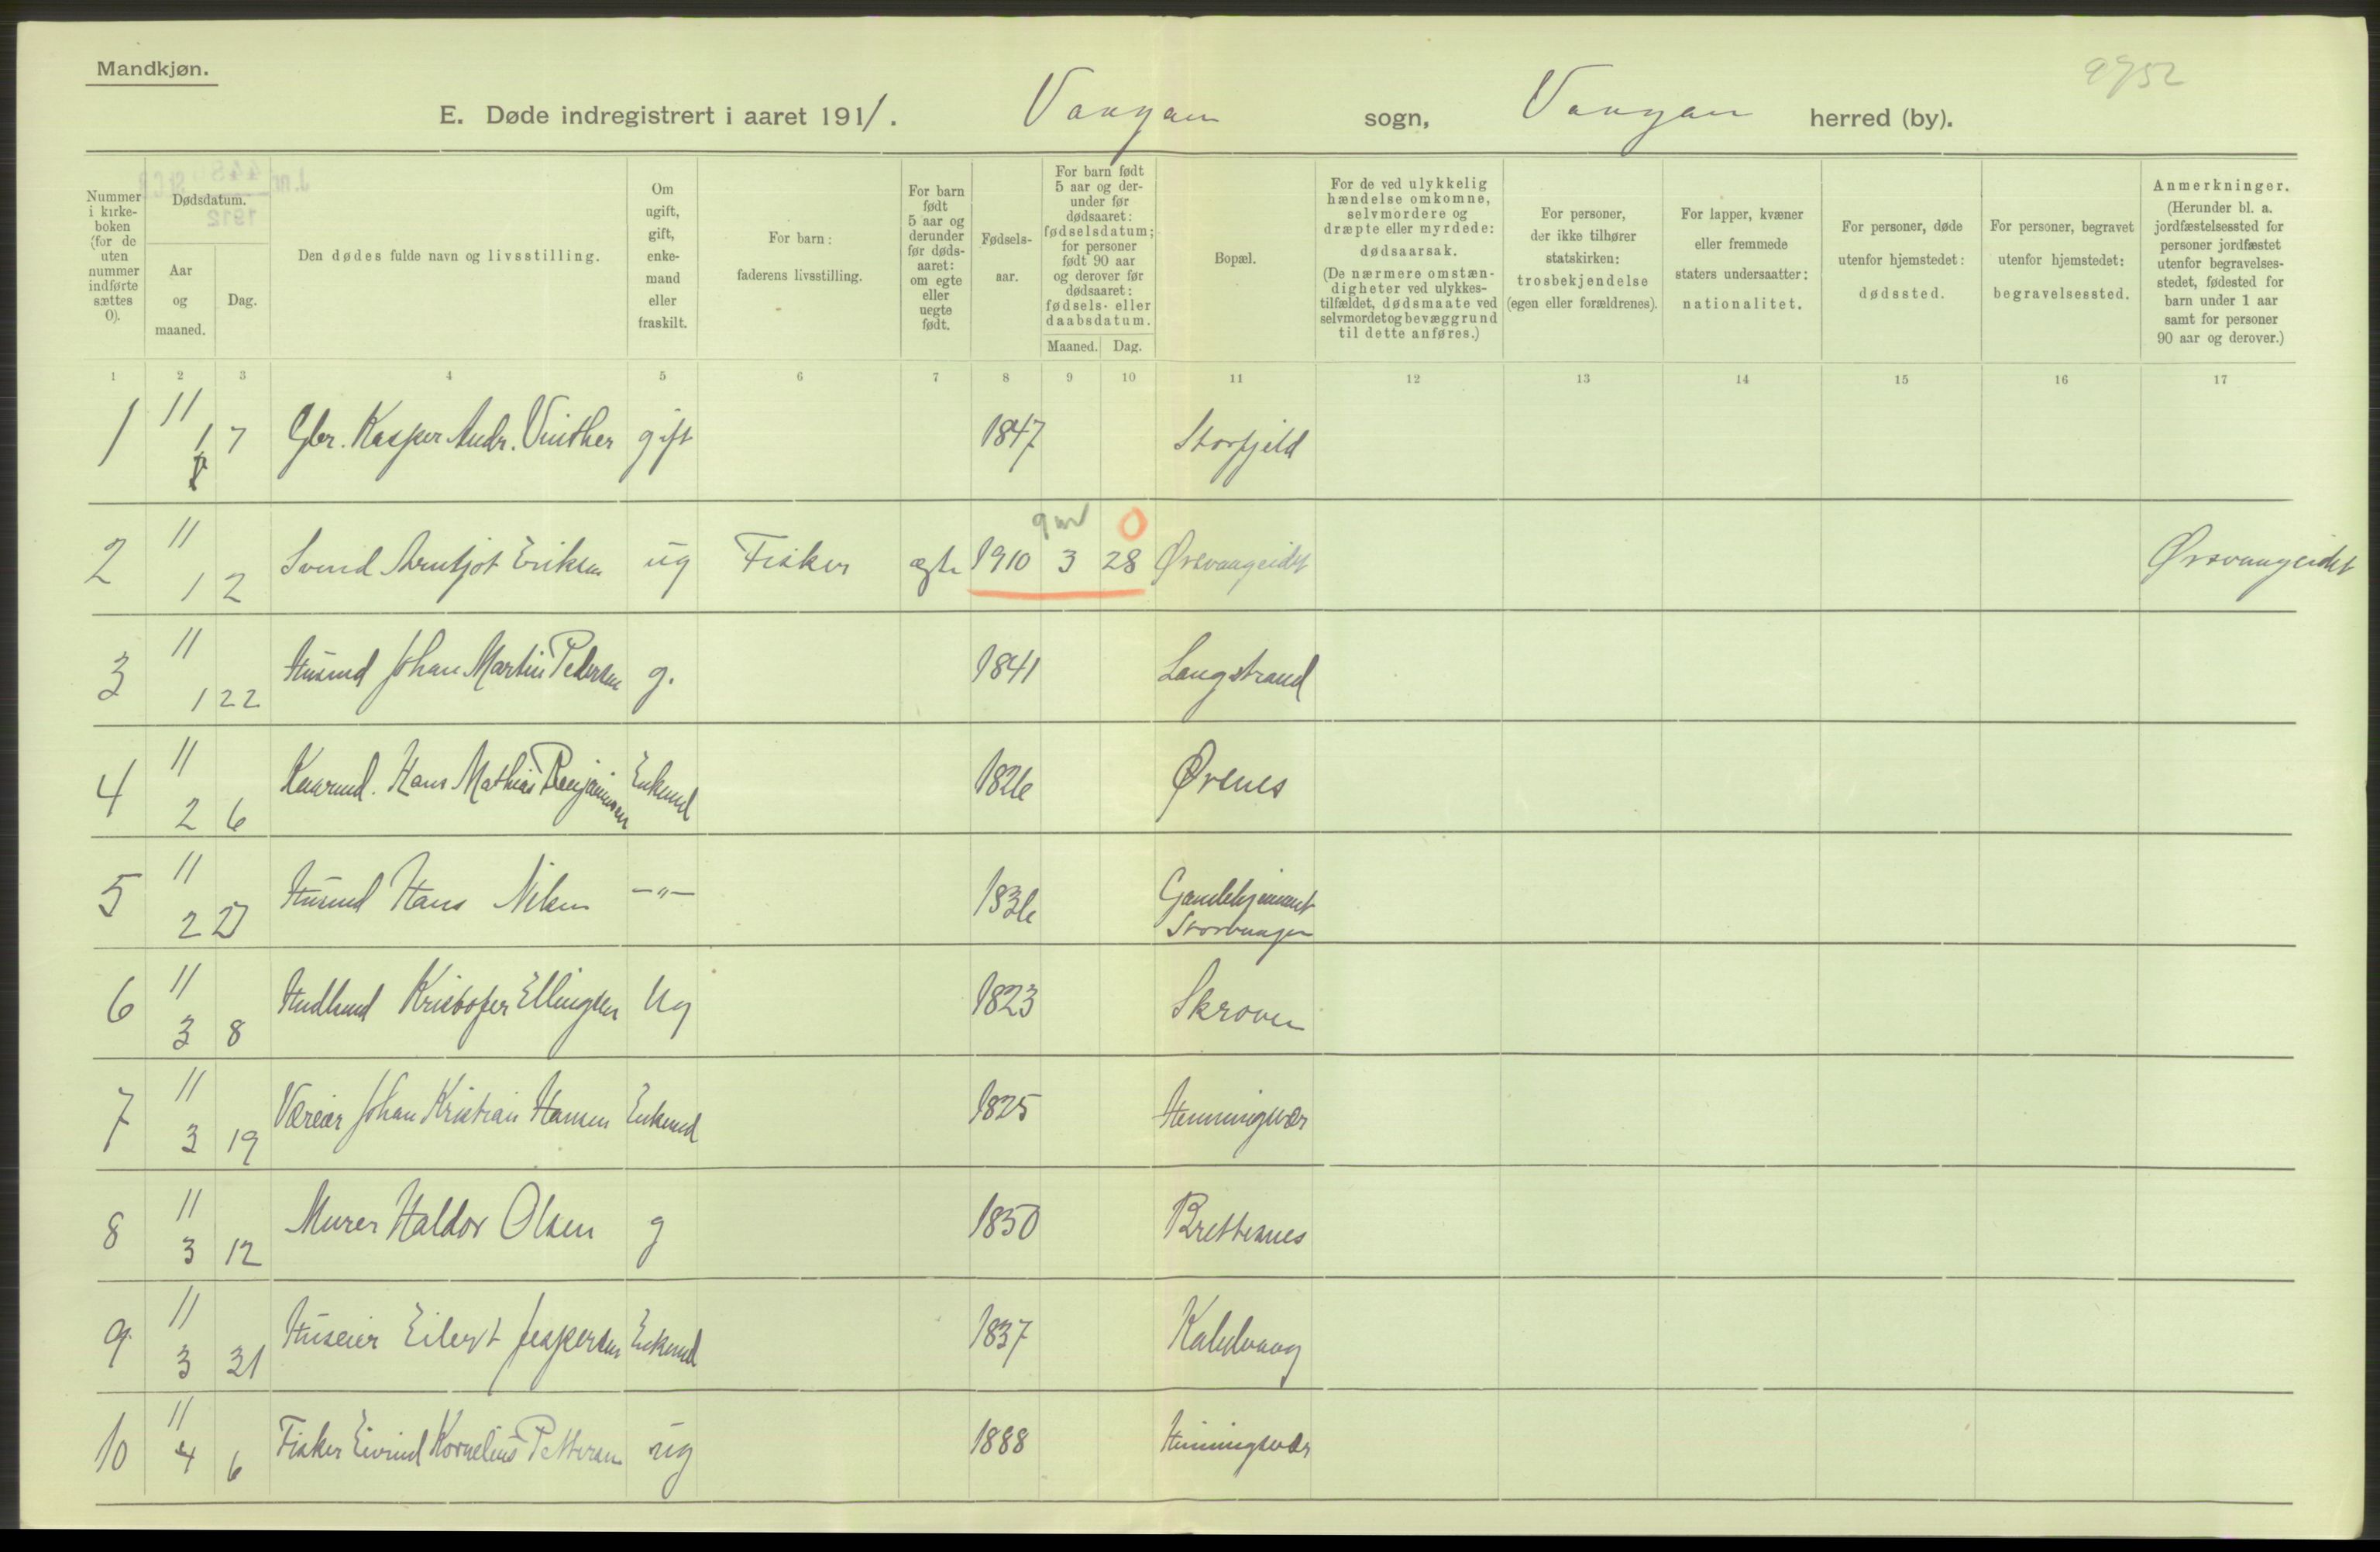 Mandkjøn.
9952
E. Døde indregistrert i aaret 1911. Vaagan sogn, Vaagan herred (by).
Nummer i kirke-boken (for de uten nummer indførte sættes 0).
Dødsdatum.
Aar og maaned.
Dag.
Den dødes fulde navn og livsstilling.
Om ugift, gift, enke-mand eller fraskilt.
For barn: faderens livsstilling.
For barn født 5 aar og derunder før døds-aaret: om egte eller uegte født.
Fødsels-aar.
For barn født 5 aar og der-under før dødsaaret: fødselsdatum; for personer født 90 aar og derover før dødsaaret: fødsels- eller daabsdatum.
Maaned. Dag.
Bopæl.
For de ved ulykkelig hændelse omkomne, selvmordere og dræpte eller myrdede: dødsaarsak. (De nærmere omstæn-digheter ved ulykkes-tilfældet, dødsmaate ved selvmordet og bevæggrund til dette anføres.)
For personer, der ikke tilhører statskirken: trosbekjendelse (egen eller forældrenes).
For lapper, kvæner eller fremmede staters undersaatter: nationalitet.
For personer, døde utenfor hjemstedet: dødssted.
For personer, begravet utenfor hjemstedet: begravelsessted.
Anmerkninger. (Herunder bl. a. jordfæstelsessted for personer jordfæstet utenfor begravelses-stedet, fødested for barn under 1 aar samt for personer 90 aar og derover.)
1 2 3 4 5 6 7 8 9 10 11 12 13 14 15 16 17
1 11 1 7 Gbr. Kasper Andr. Vinther gift 1847 Storfjeld
9 md 0
2 11 1 2 Svend Arntjot Eriksen ug Fisker egte 1910 3 28 Ørsvaageidet Ørsvaageidet
3 11 1 22 Husmd Johan Martin Pedersen g. 1841 Langstrand
4 11 2 6 Kaarmd. Hans Mathias Benjaminsen Enkemd 1826 Ørsnes
5 11 2 27 Husmd Hans Nilsen —"— 1836 Gamlehjemmet Storvaagan
6 11 3 8 Kristofer Ellingsen Ug 1823 Skroven
7 11 3 19 Væreier Johan Kristian Hansen Enkemd 1825 Henningsvær
8 11 3 12 Murer Haldor Olsen g 1850 Brettesnes
9 11 3 31 Huseier Eilert Jespersen Enkemd 1837 Kalelvaag
10 11 4 6 Fisker Eivind Kornelius Pettersen ug 1888 Henningsvær